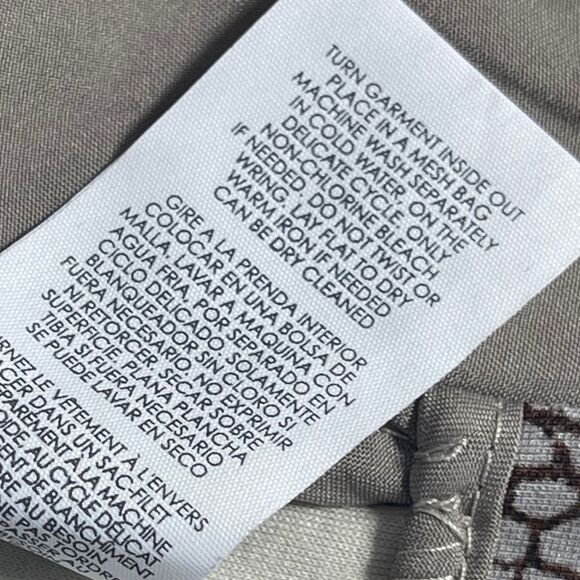 TURN GARMENT INSIDE OUT
PLACE IN A MESH BAG
MACHINE WASH SEPARATELY
IN COLD WATER, ON THE
DELICATE CYCLE. ONLY
NON-CHLORINE BLEACH,
IF NEEDED. DO NOT TWIST OR
WRING. LAY FLAT TO DRY
WARM IRON IF NEEDED
CAN BE DRY CLEANED
GIRE A LA PRENDA INTERIOR
COLOCAR EN UNA BOLSA DE
MALLA, LAVAR A MAQUINA CON
AGUA FRIA, POR SEPARADO EN
CICLO DELICADO SOLAMENTE
BLANQUEADOR SIN CLORO SI
FUERA NECESARIO, NO EXPRIMIR
NI RETORCER. SECAR SOBRE
SUPERFICIE PLANA PLANCHA
TIBIA SI FUERA NECESARIO
SE PUEDE LAVAR EN SECO
VÊTEMENT À L'ENVERS
DANS UN SAC-FILET
À LA MACHINE
AU CYCLE DÉLICAT
DE BLANCHIMENT
AU BESOIN
PAS